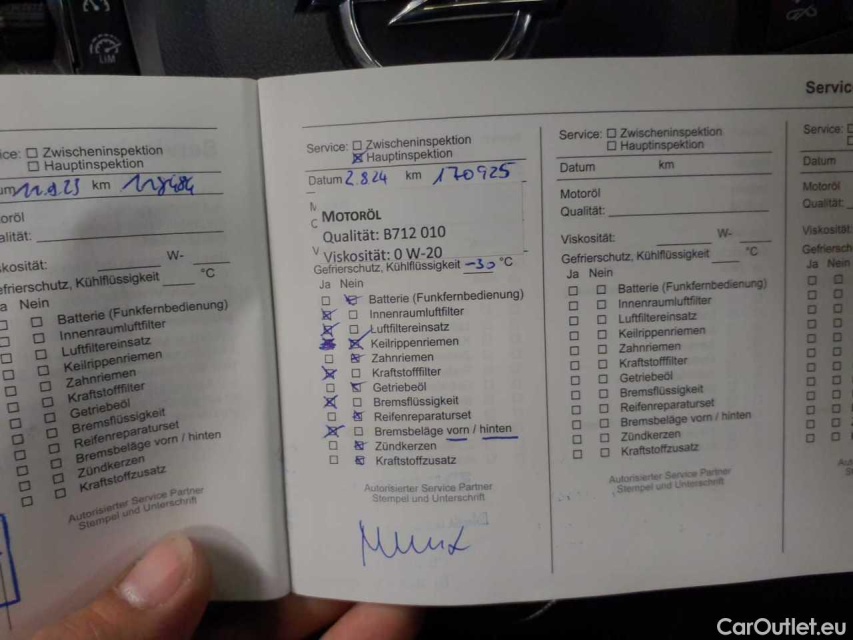 LIM
Servic
ice: ☐ Zwischeninspektion
☐ Hauptinspektion
um 11.9.23 km
oröl
alität:
W-
skosität:
efrierschutz, Kühlflüssigkeit °C
a Nein
Batterie (Funkfernbedienung)
Innenraumluftfilter
Luftfiltereinsatz
Keilrippenriemen
Zahnriemen
Kraftstofffilter
Getriebeöl
Bremsflüssigkeit
Reifenreparaturset
Bremsbeläge vorn / hinten
Zündkerzen
Kraftstoffzusatz
Autorisierter Service Partner
Stempel und Unterschrift
Service: ☐ Zwischeninspektion
☒ Hauptinspektion
Datum 2.8.24 km 170925
MOTORÖL
Qualität: B712 010
Viskosität: 0 W-20
Gefrierschutz, Kühlflüssigkeit -30 °C
Ja Nein
Batterie (Funkfernbedienung)
Innenraumluftfilter
Luftfiltereinsatz
Keilrippenriemen
Zahnriemen
Kraftstofffilter
Getriebeöl
Bremsflüssigkeit
Reifenreparaturset
Bremsbeläge vorn / hinten
Zündkerzen
Kraftstoffzusatz
Autorisierter Service Partner
Stempel und Unterschrift
Service: ☐ Zwischeninspektion
☐ Hauptinspektion
Datum km
Motoröl
Qualität:
Viskosität: W-
Gefrierschutz, Kühlflüssigkeit °C
Ja Nein
Batterie (Funkfernbedienung)
Innenraumluftfilter
Luftfiltereinsatz
Keilrippenriemen
Zahnriemen
Kraftstofffilter
Getriebeöl
Bremsflüssigkeit
Reifenreparaturset
Bremsbeläge vorn / hinten
Zündkerzen
Kraftstoffzusatz
Autorisierter Service Partner
Stempel und Unterschrift
Service: ☐
Datum
Motoröl
Qualität:
Viskosität:
Gefriersch
Ja Nein
CarOutlet.eu